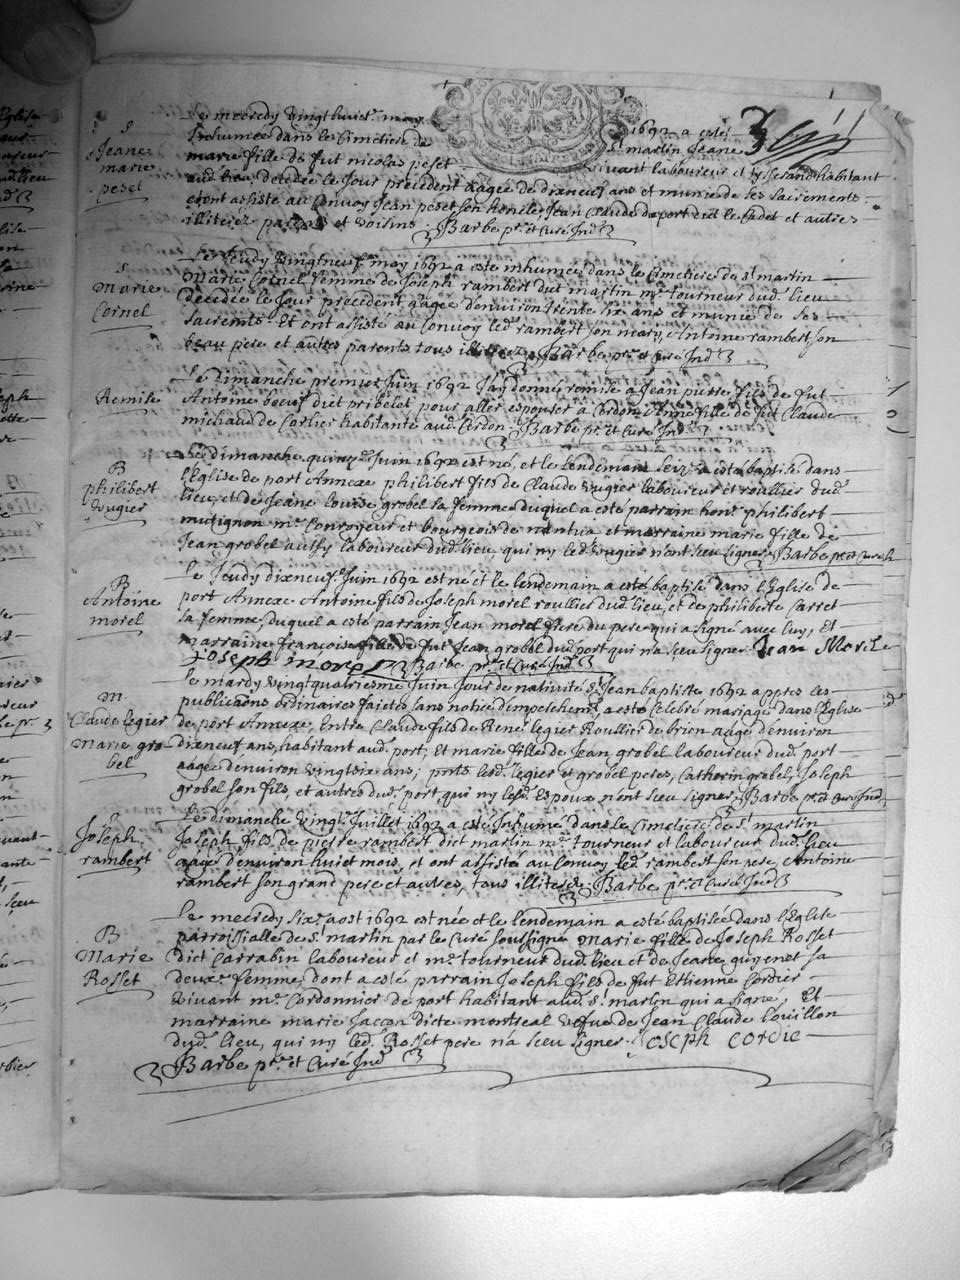 Le mecredy vingthuict.e may 1692 a esté
Inhumée dans le Cimetiere de St martin Jeane
S
Jeane
marie
peset
marie fille de fut nicolas peset vivant laboureur et tisserand habitant
aud. lieu, decedée le Jour precedent aagée de dixneuf ans et munie de ses Sacrements
et ont assisté au Convoy Jean peset son Jean Claude duport dict le Cadet et autres
illiterez parens et voisins. Barbe pr. et Curé Ind.
S
marie
Cornel
Le Jeudy vingtneuf.e may 1692 a esté inhumée dans le Cimetiere de St martin
Marie Cornel femme de Joseph rambert dict martin me. tourneur dud. lieu
decedée le Jour precedent aagée denviron trente six ans et munie de ses
Sacremts. Et ont assisté au Convoy led. rambert son mary, Antoine rambert son
beau pere et autres parents tous illiterez. Barbe pr. et Curé Ind.
Remise
Le Dimanche premier Juin 1692 J'ay donné remise a Jean pierre fils de fut
Antoine boeuf dict pribelet pour aller espouser à Cerdon Anne fille de fut Claude
michaud de Corlier habitante aud. Cerdon. Barbe pr. et Curé Ind.
B
philibert
vugier
Le dimanche quinz.e Juin 1692 est né, et le Lendemain seiz.e a esté baptisé dans
l'Eglise de port Annexe philibert fils de Claude vugier laboureur et roullier dud.
lieu, et de Jeane Louise grobel sa femme duquel a esté parrain hon. philibert
mutignon me. Conroyeur et bourgeois de nantua et marraine marie fille de
Jean grobel aussy laboureur dud. lieu, qui ny led. vugier n'ont sceu signer. Barbe pr. et Curé
B
Antoine
morel
Le Jeudy dixneuf.e Juin 1692 est né et le lendemain a esté baptisé dans l'Eglise de
port Annexe Antoine fils de Joseph morel roullier dud. lieu, et de philiberte Carret
sa femme, duquel a esté parrain Jean morel frere du pere qui a signé avec luy, Et
marraine francoise fille de fut Jean grobel dud. port qui n'a sceu signer. Jean Morel
Joseph morel Barbe pr. et Curé Ind.
m
Claude legier
Marie gro-
bel
Le mardy vingtquatriesme Juin Jour de nativité St Jean baptiste 1692 apres les
publications ordinaires faictes sans notice dempeschemt. a esté celebré mariage dans l'Eglise
de port Annexe, Entre Claude fils de René legier Roullier de brion aagé denviron
dixneuf ans, habitant aud. port; Et marie fille de Jean grobel laboureur dud. port
aagée denviron vingtsix ans; pnts lesd. legier et grobel peres, Catherin grobel, Joseph
grobel son fils, et autres dud. port qui ny lesd. Espoux n'ont sceu signer. Barbe pr. et Curé Ind.
S
Joseph
rambert
Le dimanche vingt.e Juillet 1692 a esté Inhumé dans le Cimetiere de St martin
Joseph fils de pierre rambert dict martin me. tourneur et laboureur dud. lieu
aagé denviron huict mois, et ont assisté au Convoy led. rambert son pere, Antoine
rambert son grand pere et autres, tous illiterez. Barbe pr. et Curé Ind.
B
Marie
Rosset
Le mecredy six.e aost 1692 est née et le lendemain a esté baptisée dans l'Eglise
parroissialle de St martin par le Curé soussigné Marie fille de Joseph Rosset
dict Carrabin laboureur et me. tourneur dud. lieu et de Jeane guyenet sa
deux.e femme, dont a esté parrain Joseph fils de fut Etienne Cordier
vivant me. Cordonnier de port habitant aud. St martin qui a signé, Et
marraine marie Jaccon dicte montreal vefve de Jean Claude Covillon
dud. lieu, qui ny led. Rosset pere n'a sceu signer. Joseph Cordie
Barbe pr. et Curé Ind.